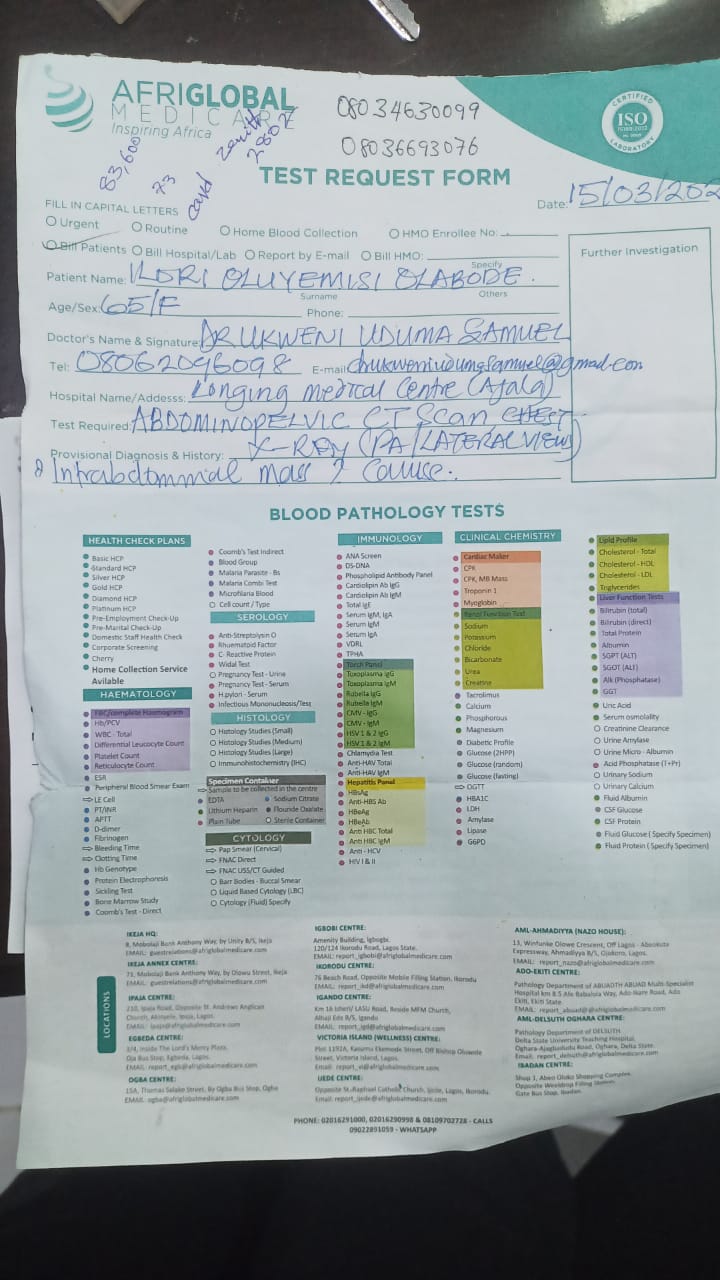 AFRIGLOBAL
MEDICARE
Inspiring Africa
08034630099
08036693076
83,600
73
card
zenith
TEST REQUEST FORM
CERTIFIED
ISO
LABORATORY
Date: 15/03/202
FILL IN CAPITAL LETTERS
Urgent Routine Home Blood Collection HMO Enrollee No:
Bill Patients Bill Hospital/Lab Report by E-mail Bill HMO:
Specify
Further Investigation
Patient Name: ILORI OLUYEMISI OLABODE.
Surname Others
Age/Sex: 65/F Phone:
Doctor's Name & Signature: DR UKWENI UDUMA SAMUEL
Tel: 08062096098 E-mail:
Hospital Name/Addesss: Longing medical Centre (Ajala)
Test Required: ABDOMINOPELVIC CT Scan CHEST
X-RAY (PA/LATERAL VIEW)
Provisional Diagnosis & History:
Intrabdommal mass ? Cause.
BLOOD PATHOLOGY TESTS
HEALTH CHECK PLANS
Basic HCP
Standard HCP
Silver HCP
Gold HCP
Diamond HCP
Platinum HCP
Pre-Employment Check-Up
Pre-Marital Check-Up
Domestic Staff Health Check
Corporate Screening
Cherry
Home Collection Service
Avilable
HAEMATOLOGY
FBC/complete Haemogram
Hb/PCV
WBC - Total
Differential Leucocyte Count
Platelet Count
Reticulocyte Count
ESR
Peripheral Blood Smear Exam
LE Cell
PT/INR
APTT
D-dimer
Fibrinogen
Bleeding Time
Clotting Time
Hb Genotype
Protein Electrophoresis
Sickling Test
Bone Marrow Study
Coomb's Test - Direct
Coomb's Test Indirect
Blood Group
Malaria Parasite - Bs
Malaria Combi Test
Microfilaria Blood
Cell count / Type
SEROLOGY
Anti-Streptolysin O
Rheumatoid Factor
C- Reactive Protein
Widal Test
Pregnancy Test - Urine
Pregnancy Test - Serum
H pylori - Serum
Infectious Mononucleosis/Test
HISTOLOGY
Histology Studies (Small)
Histology Studies (Medium)
Histology Studies (Large)
Immunohistochemistry (IHC)
Specimen Container
Sample to be collected in the centre
EDTA Sodium Citrate
Lithium Heparin Flouride Oxalate
Plain Tube Sterile Container
CYTOLOGY
Pap Smear (Cervical)
FNAC Direct
FNAC USS/CT Guided
Barr Bodies - Buccal Smear
Liquid Based Cytology (LBC)
Cytology (Fluid) Specify
IMMUNOLOGY
ANA Screen
DS-DNA
Phospholipid Antibody Panel
Cardiolipin Ab IgG
Cardiolipin Ab IgM
Total IgE
Serum IgM, IgA
Serum IgM
Serum IgA
VDRL
TPHA
Torch Panel
Toxoplasma IgG
Toxoplasma IgM
Rubella IgG
Rubella IgM
CMV - IgG
CMV - IgM
HSV 1 & 2 IgG
HSV 1 & 2 IgM
Chlamydia Test
Anti-HAV Total
Anti-HAV IgM
Hepatitis Panel
HBsAg
Anti-HBS Ab
HBeAg
HBeAb
Anti HBC Total
Anti HBC IgM
Anti - HCV
HIV I & II
CLINICAL CHEMISTRY
Cardiac Maker
CPK
CPK, MB Mass
Troponin 1
Myoglobin
Renal Function Test
Sodium
Potassium
Chloride
Bicarbonate
Urea
Creatine
Tacrolimus
Calcium
Phosphorous
Magnesium
Diabetic Profile
Glucose (2HPP)
Glucose (random)
Glucose (fasting)
OGTT
HBA1C
LDH
Amylase
Lipase
G6PD
Lipid Profile
Cholesterol - Total
Cholesterol - HDL
Cholesterol - LDL
Triglycerides
Liver Function Tests
Bilirubin (total)
Bilirubin (direct)
Total Protein
Albumin
SGPT (ALT)
SGOT (ALT)
Alk (Phosphatase)
GGT
Uric Acid
Serum osmolality
Creatinine Clearance
Urine Amylase
Urine Micro - Albumin
Acid Phosphatase (T+Pr)
Urinary Sodium
Urinary Calcium
Fluid Albumin
CSF Glucose
CSF Protein
Fluid Glucose ( Specify Specimen)
Fluid Protein ( Specify Specimen)
LOCATIONS
IKEJA HQ:
8, Mobolaji Bank Anthony Way, by Unity B/S, Ikeja
EMAIL: guestrelations@afriglobalmedicare.com
IKEJA ANNEX CENTRE:
71, Mobolaji Bank Anthony Way, by Olowu Street, Ikeja
EMAIL: guestrelations@afriglobalmedicare.com
IPAJA CENTRE:
210, Ipaja Road, Opposite St. Andrews Anglican
Church, Lagos.
EMAIL: ipaja@afriglobalmedicare.com
EGBEDA CENTRE:
3/4, Inside The Lord's Mercy Plaza,
Oja Bus Stop, Egbeda, Lagos.
EMAIL: report_egb@afriglobalmedicare.com
OGBA CENTRE:
15A, Thomas Salako Street, By Ogba Bus Stop, Ogba
EMAIL: ogba@afriglobalmedicare.com
IGBOBI CENTRE:
Amenity Building, Igbogbi.
120/124 Ikorodu Road, Lagos State.
EMAIL: report_igbobi@afriglobalmedicare.com
IKORODU CENTRE:
76 Beach Road, Opposite Mobile Filling Station, Ikorodu
EMAIL: report_ikd@afriglobalmedicare.com
IGANDO CENTRE:
Km 16 Isheri/ LASU Road, Beside MFM Church,
Alhaji Ede B/S, Igando
EMAIL: report_igd@afriglobalmedicare.com
VICTORIA ISLAND (WELLNESS) CENTRE:
Plot 1192A, Kasumu Ekemode Street, Off Bishop Oluwole
Street, Victoria Island, Lagos.
Email: report_vi@afriglobalmedicare.com
IJEDE CENTRE:
Opposite St.Raphael Catholic Church, Ijede, Lagos, Ikorodu.
Email: report_ijede@afriglobalmedicare.com
AML-AHMADIYYA (NAZO HOUSE):
13, Winfunke Olowe Crescent, Off Lagos - Abeokuta
Expressway, Ahmadiyya B/S, Ojokoro, Lagos.
EMAIL: report_nazo@afriglobalmedicare.com
ADO-EKITI CENTRE:
Pathology Department of ABUADTH ABUAD Multi-Specialist
Hospital km 8.5 Afe Babalola Way, Ado Ikare Road, Ado
Ekiti, Ekiti State
EMAIL: report_abuad@afriglobalmedicare.com
AML-DELSUTH OGHARA CENTRE:
Pathology Department of DELSUTH
Delta State University Teaching Hospital,
Oghara-Ajagbodudu Road, Oghara, Delta State.
Email: report_delsuth@afriglobalmedicare.com
IBADAN CENTRE:
Shop 1, Aben Oloko Shopping Complex,
Opposite Filling Station,
Gate Bus Stop, Ibadan.
PHONE: 02016291000, 02016290998 & 08109702728 - CALLS
09022891059 - WHATSAPP